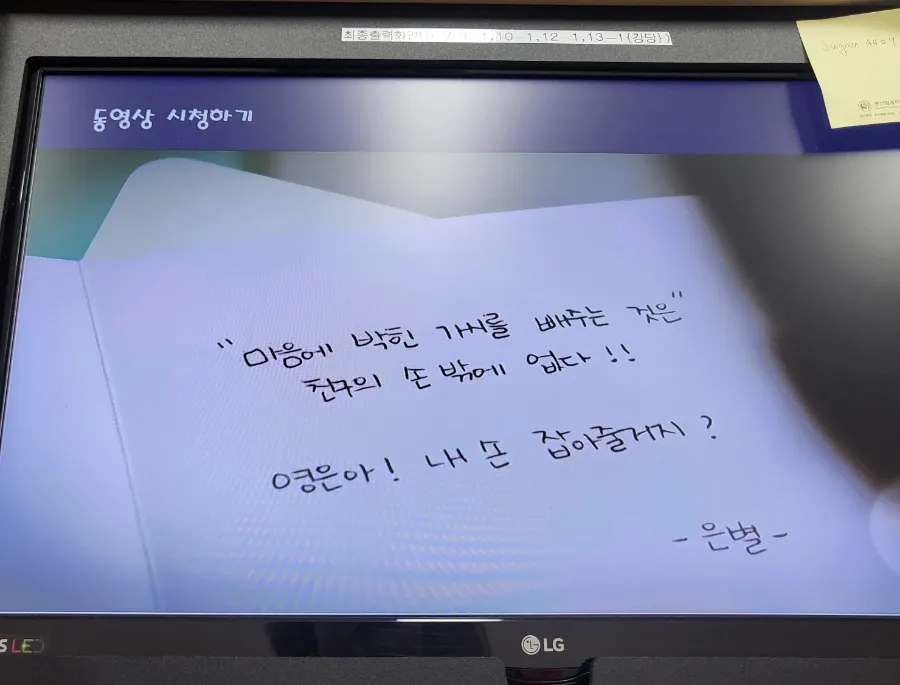 1,10-1,12 1,13-1(강당))
동영상 시청하기
"마음에 박힌 가시를 빼주는 것은"
친구의 손 밖에 없다!!
영은아! 내 손 잡아줄거지?
-은별-
S LED
LG